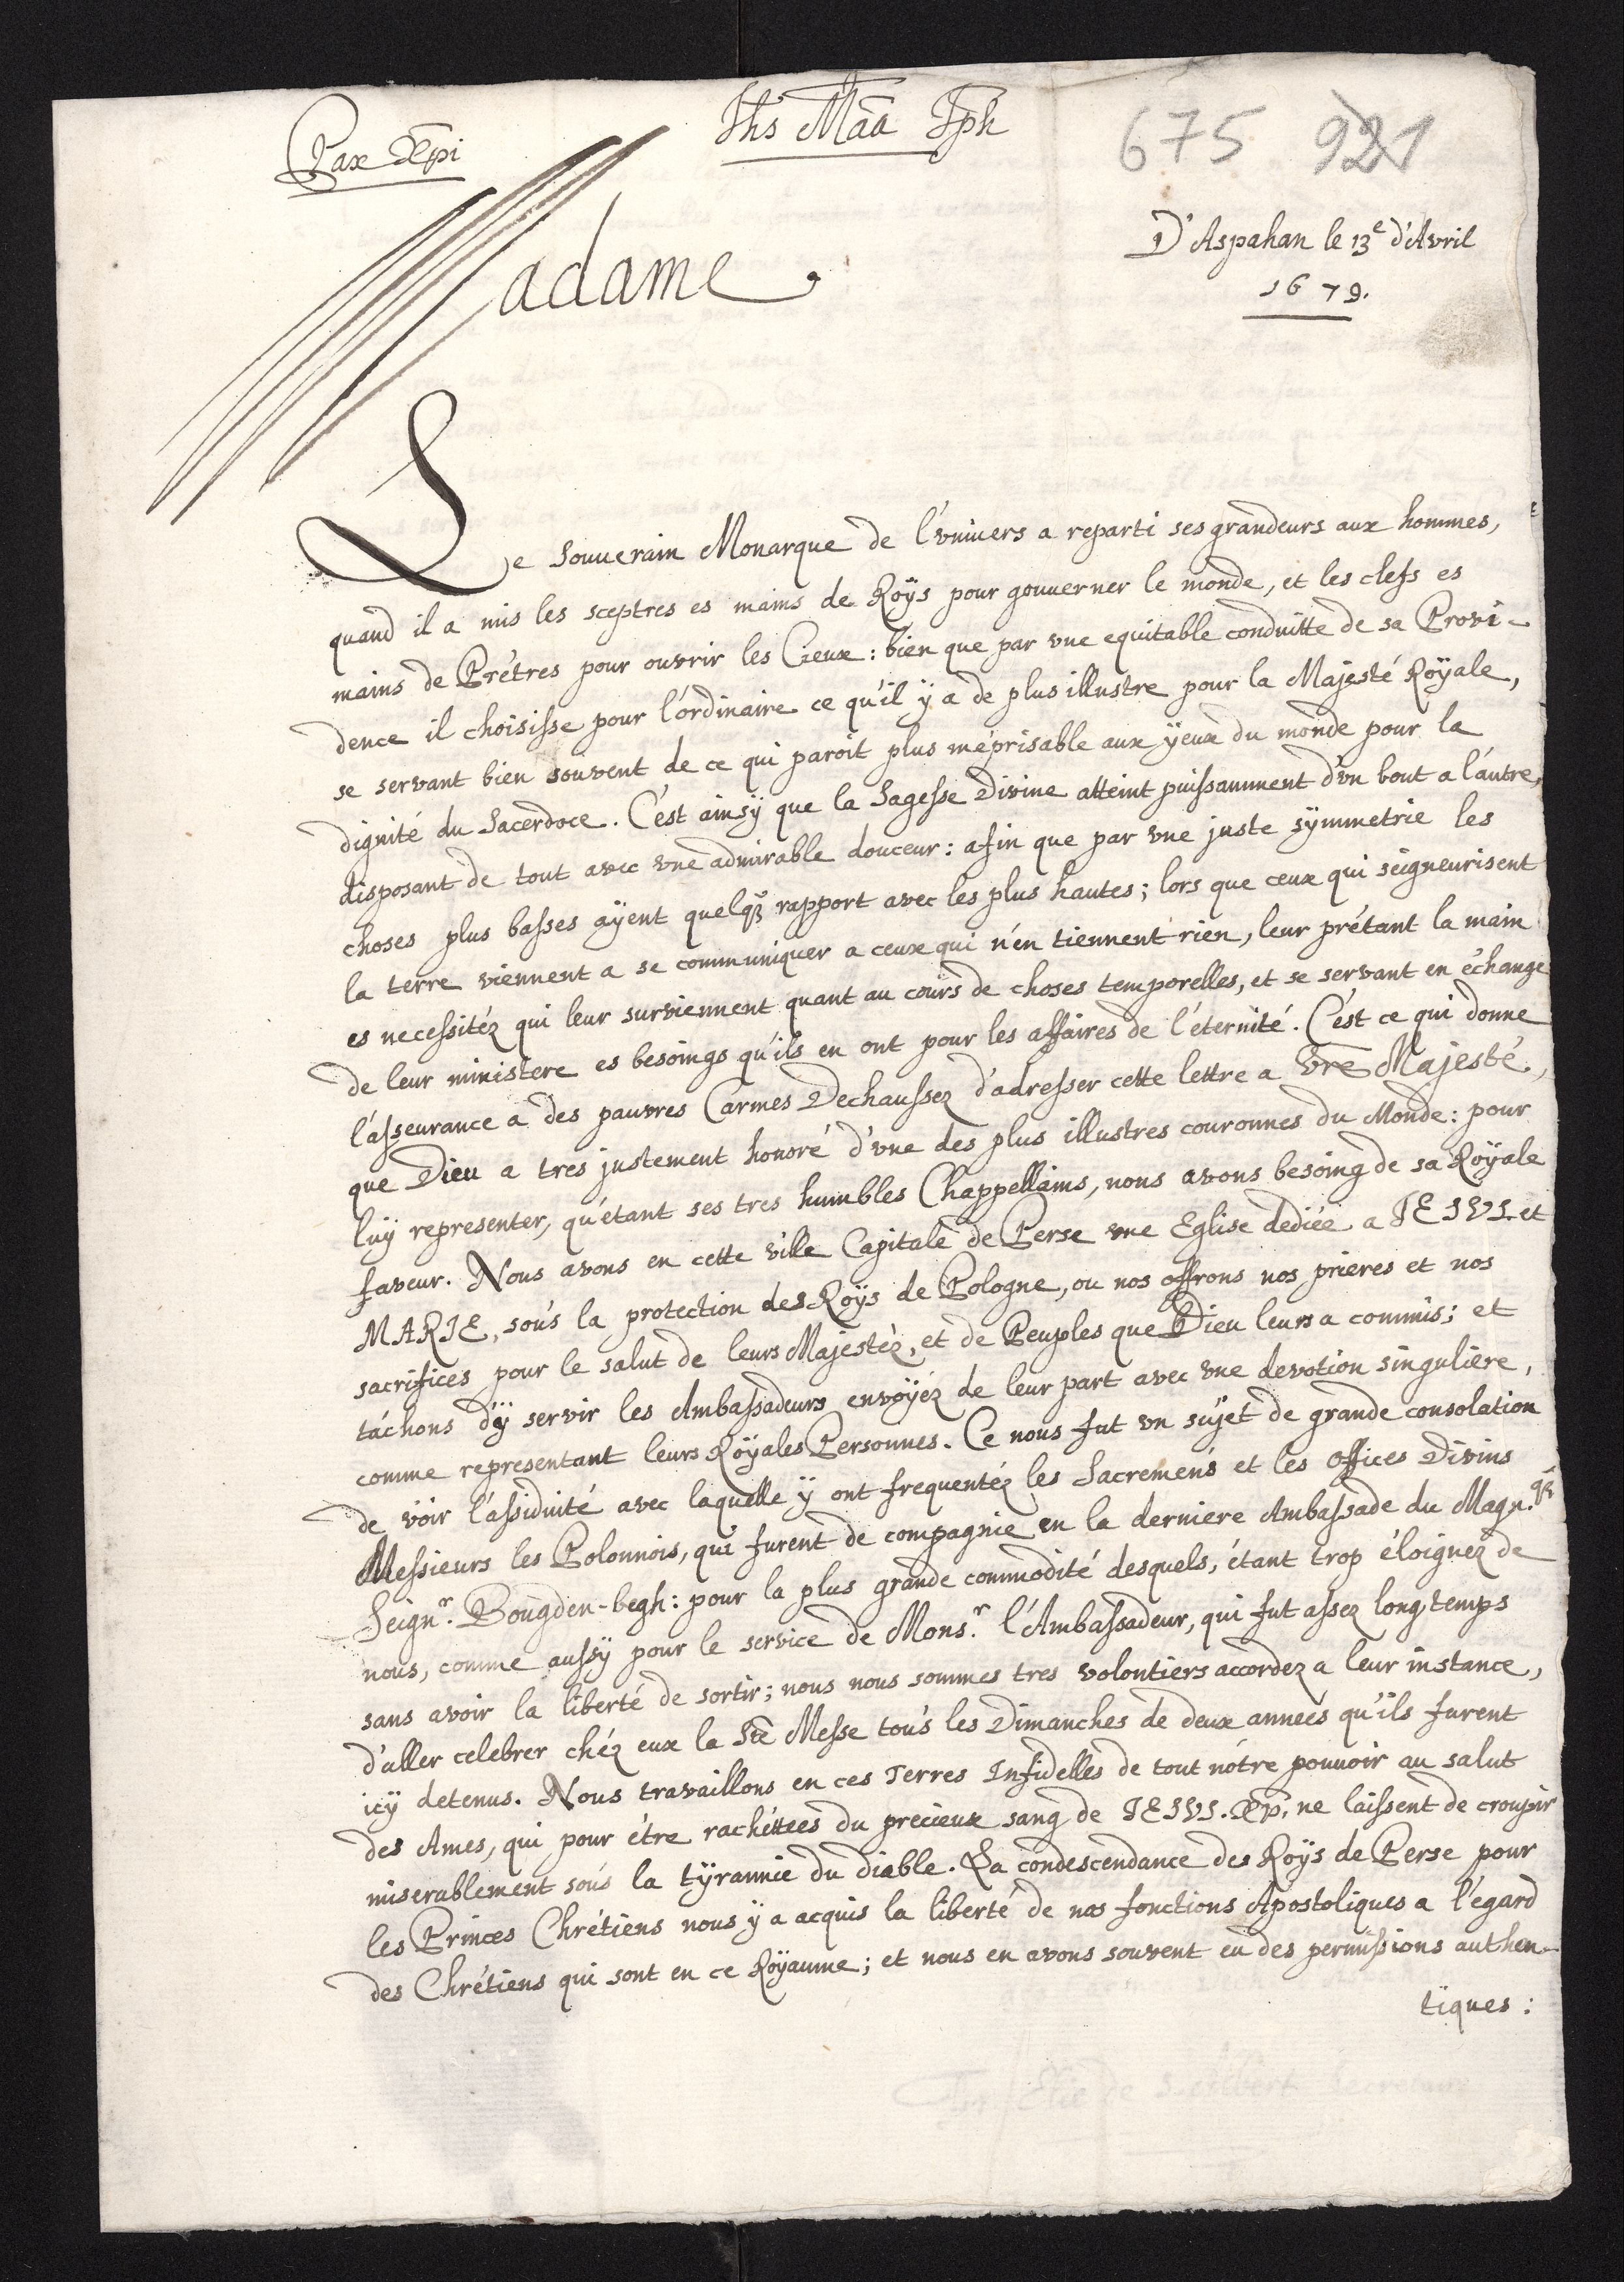 Pax Xp̃i
Jhs Mãa Jph
675 921
D'Aspahan le 13e d'Avril
1679.
Madame.
Le Souuerain Monarque de l'vniuers a reparti ses grandeurs aux hommes,
quand il a mis les sceptres es mains de Roÿs pour gouuerner le monde, et les clefs es
mains de Prétres pour ouvrir les Cieux: bien que par vne equitable conduitte de sa Provi-
dence il choisisse pour l'ordinaire ce qu'il ÿ a de plus illustre pour la Majesté Roÿale,
se servant bien souvent de ce qui paroit plus méprisable aux ÿeux du monde pour la
dignité du Sacerdoce. C'est ainsÿ que la Sagesse Divine atteint puissamment d'vn bout a l'autre,
disposant de tout avec vne admirable douceur: afin que par vne juste sÿmmetrie les
choses plus basses aÿent quelqȝ rapport avec les plus hautes; lors que ceux qui seigneurisent
la terre viennent a se communiquer a ceux qui n'en tiennent rien, leur prétant la main
es necessitéz qui leur surviennent quant au cours de choses temporelles, et se servant en échange
de leur ministere es besoings qu'ils en ont pour les affaires de l'éternité. C'est ce qui donne
l'asseurance a des pauvres Carmes Dechaussez d'adresser cette lettre a Vr̃e Majesté,
que Dieu a tres justement honoré d'vne des plus illustres couronnes du Monde: pour
luÿ representer, qu'étant ses tres humbles Chappellains, nous avons besoing de sa Roÿale
faveur. Nous avons en cette ville Capitale de Perse vne Eglise dediée a JESVS et
MARIE, sous la protection des Roÿs de Pologne, ou nos offrons nos prieres et nos
sacrifices pour le salut de leurs Majestéz, et de Peuples que Dieu leurs a commis; et
táchons d'ÿ servir les Ambassadeurs envoÿéz de leur part avec vne devotion singuliere,
comme representant leurs Roÿales Personnes. Ce nous fut vn sujet de grande consolation
de voir l'assiduité avec laquelle ÿ ont frequentéz les Sacremens et les Offices Divins
Messieurs les Polonnois, qui furent de compagnie en la derniere Ambassade du Magn.qȝ
Seignr. Bougden-begh: pour la plus grande commodité desquels, étant trop éloignez de
nous, comme aussÿ pour le service de Monsr. l'Ambassadeur, qui fut assez long temps
sans avoir la liberté de sortir; nous nous sommes tres volontiers accordez a leur instance,
d'aller celebrer chéz eux la Ste Messe tous les Dimanches de deux années qu'ils furent
icÿ detenus. Nous travaillons en ces Terres Infidelles de tout nótre pouuoir au salut
des Ames, qui pour étre rachéttées du precieux sang de JESVS. Xp̃, ne laissent de croupir
miserablement sous la tÿrannie du diable. La condescendance des Roÿs de Perse pour
les Princes Chrétiens nous ÿ a acquis la liberté de nos fonctions Apostoliques a l'égard
des Chrétiens qui sont en ce Roÿaume; et nous en avons souvent eu des permissions authen-
tiques: